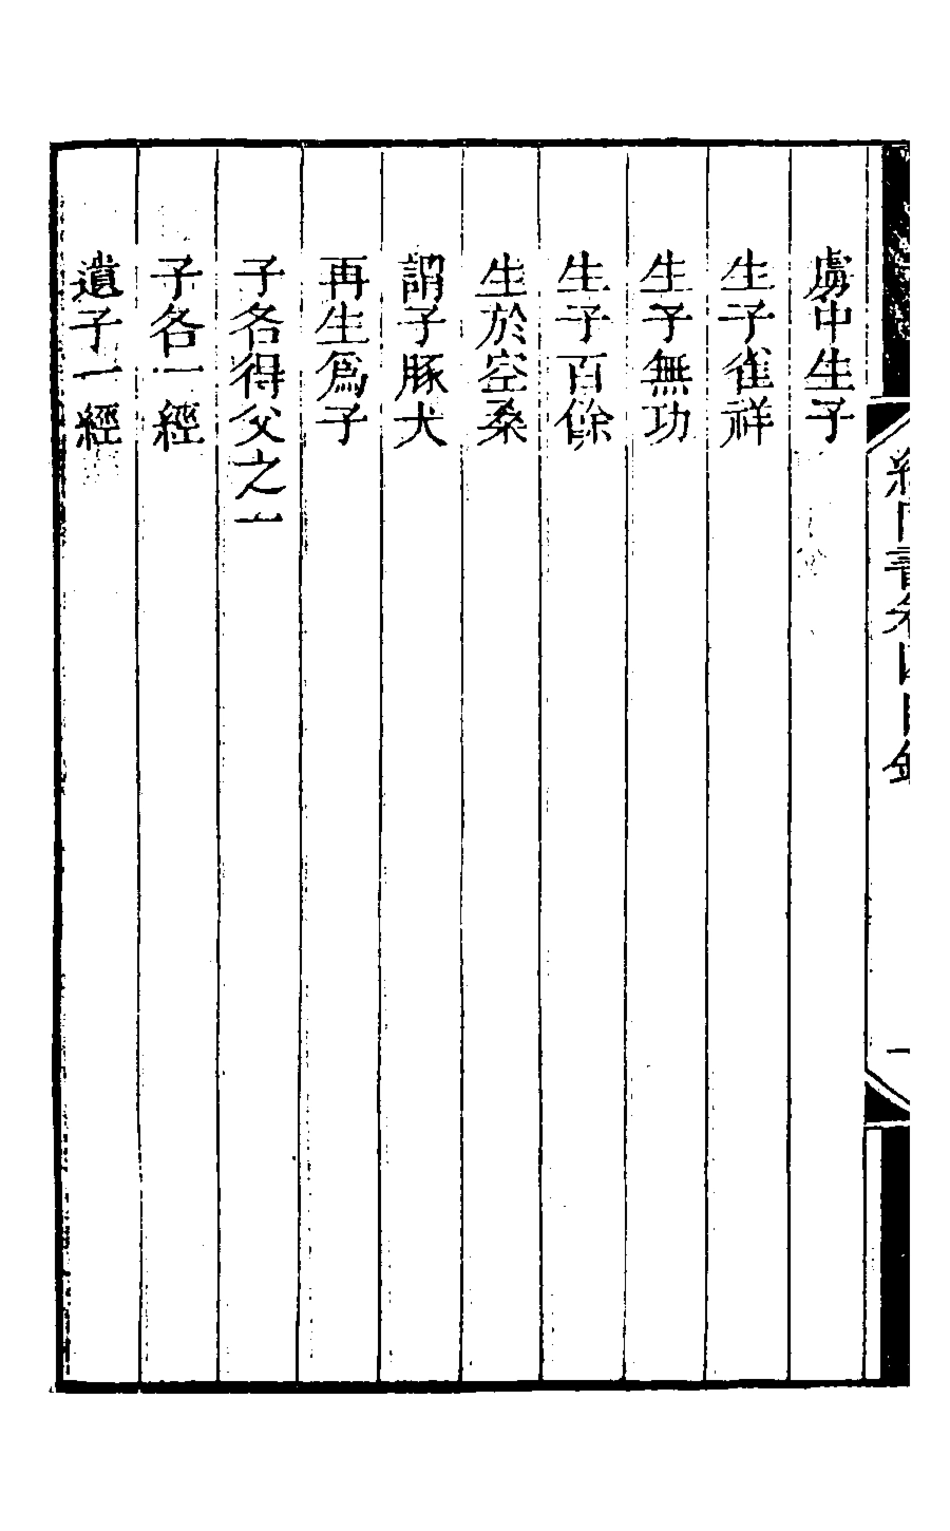 虜中生子
生子雀祥
生子無功
生子百餘
生於空桑
謂子豚犬
再生爲子
子各得父之一
子各一經
遺子一經